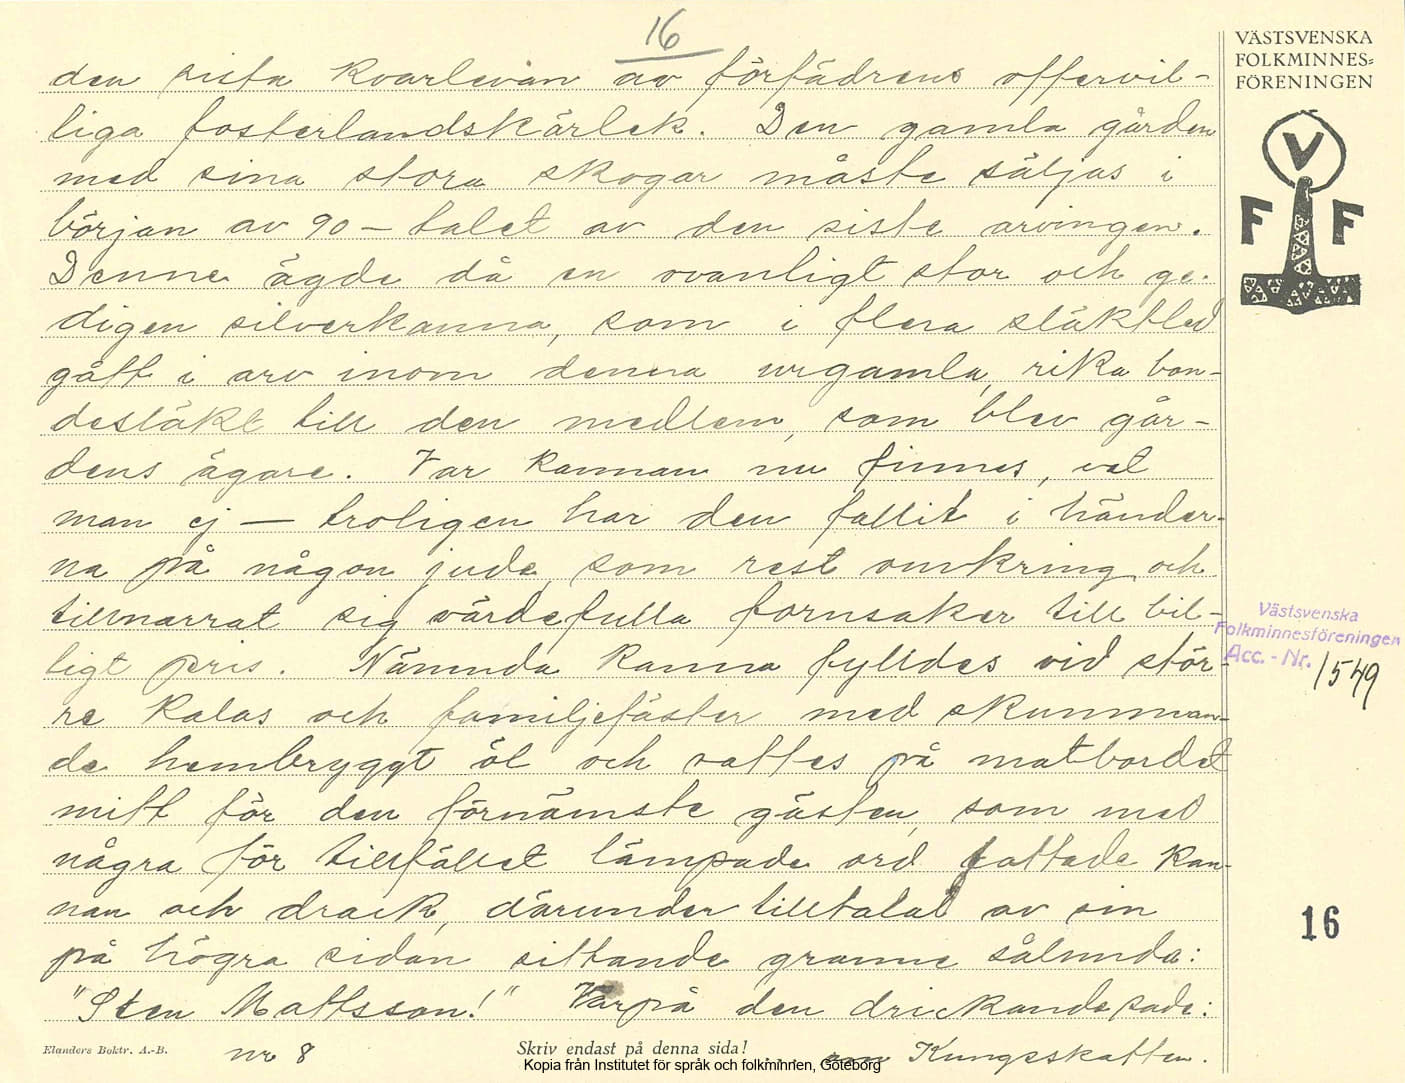 16
den sista kvarlevan av förfädrens offervil-
liga fosterlandskärlek. Den gamla gården
med sina stora skogar måste säljas i
början av 90 – talet av den siste arvingen.
Denne ägde då en ovanligt stor och ge-
digen silverkanna, som i flera släktled
gått i arv inom denna urgamla, rika bon-
desläkt till den medlem, som blev går-
dens ägare. Var kannan nu finnes, vet
man ej – troligen har den fallit i händer-
na på någon jude, som rest omkring och
tillnarrat sig värdefulla fornsaker till bil-
ligt pris. Nämnda kanna fylldes vid stör-
re kalas och familjefäster med skumman-
de hembryggt öl och sattes på matbordet
mitt för den förnämste gästen, som med
några för tillfället lämpade ord fattade kan-
nan och drack, därunder tilltalad av sin
på högra sidan sittande granne sålunda:
"Sten Mattsson!" Varpå den drickande sade:
Elanders Boktr. A.-B.
nr 8
Skriv endast på denna sida!
Kungsskatten.
Kopia från Institutet för språk och folkminnen, Göteborg
VÄSTSVENSKA
FOLKMINNES=
FÖRENINGEN
V
F F
Västsvenska
Folkminnesföreningen
Acc. - Nr. 1549
16